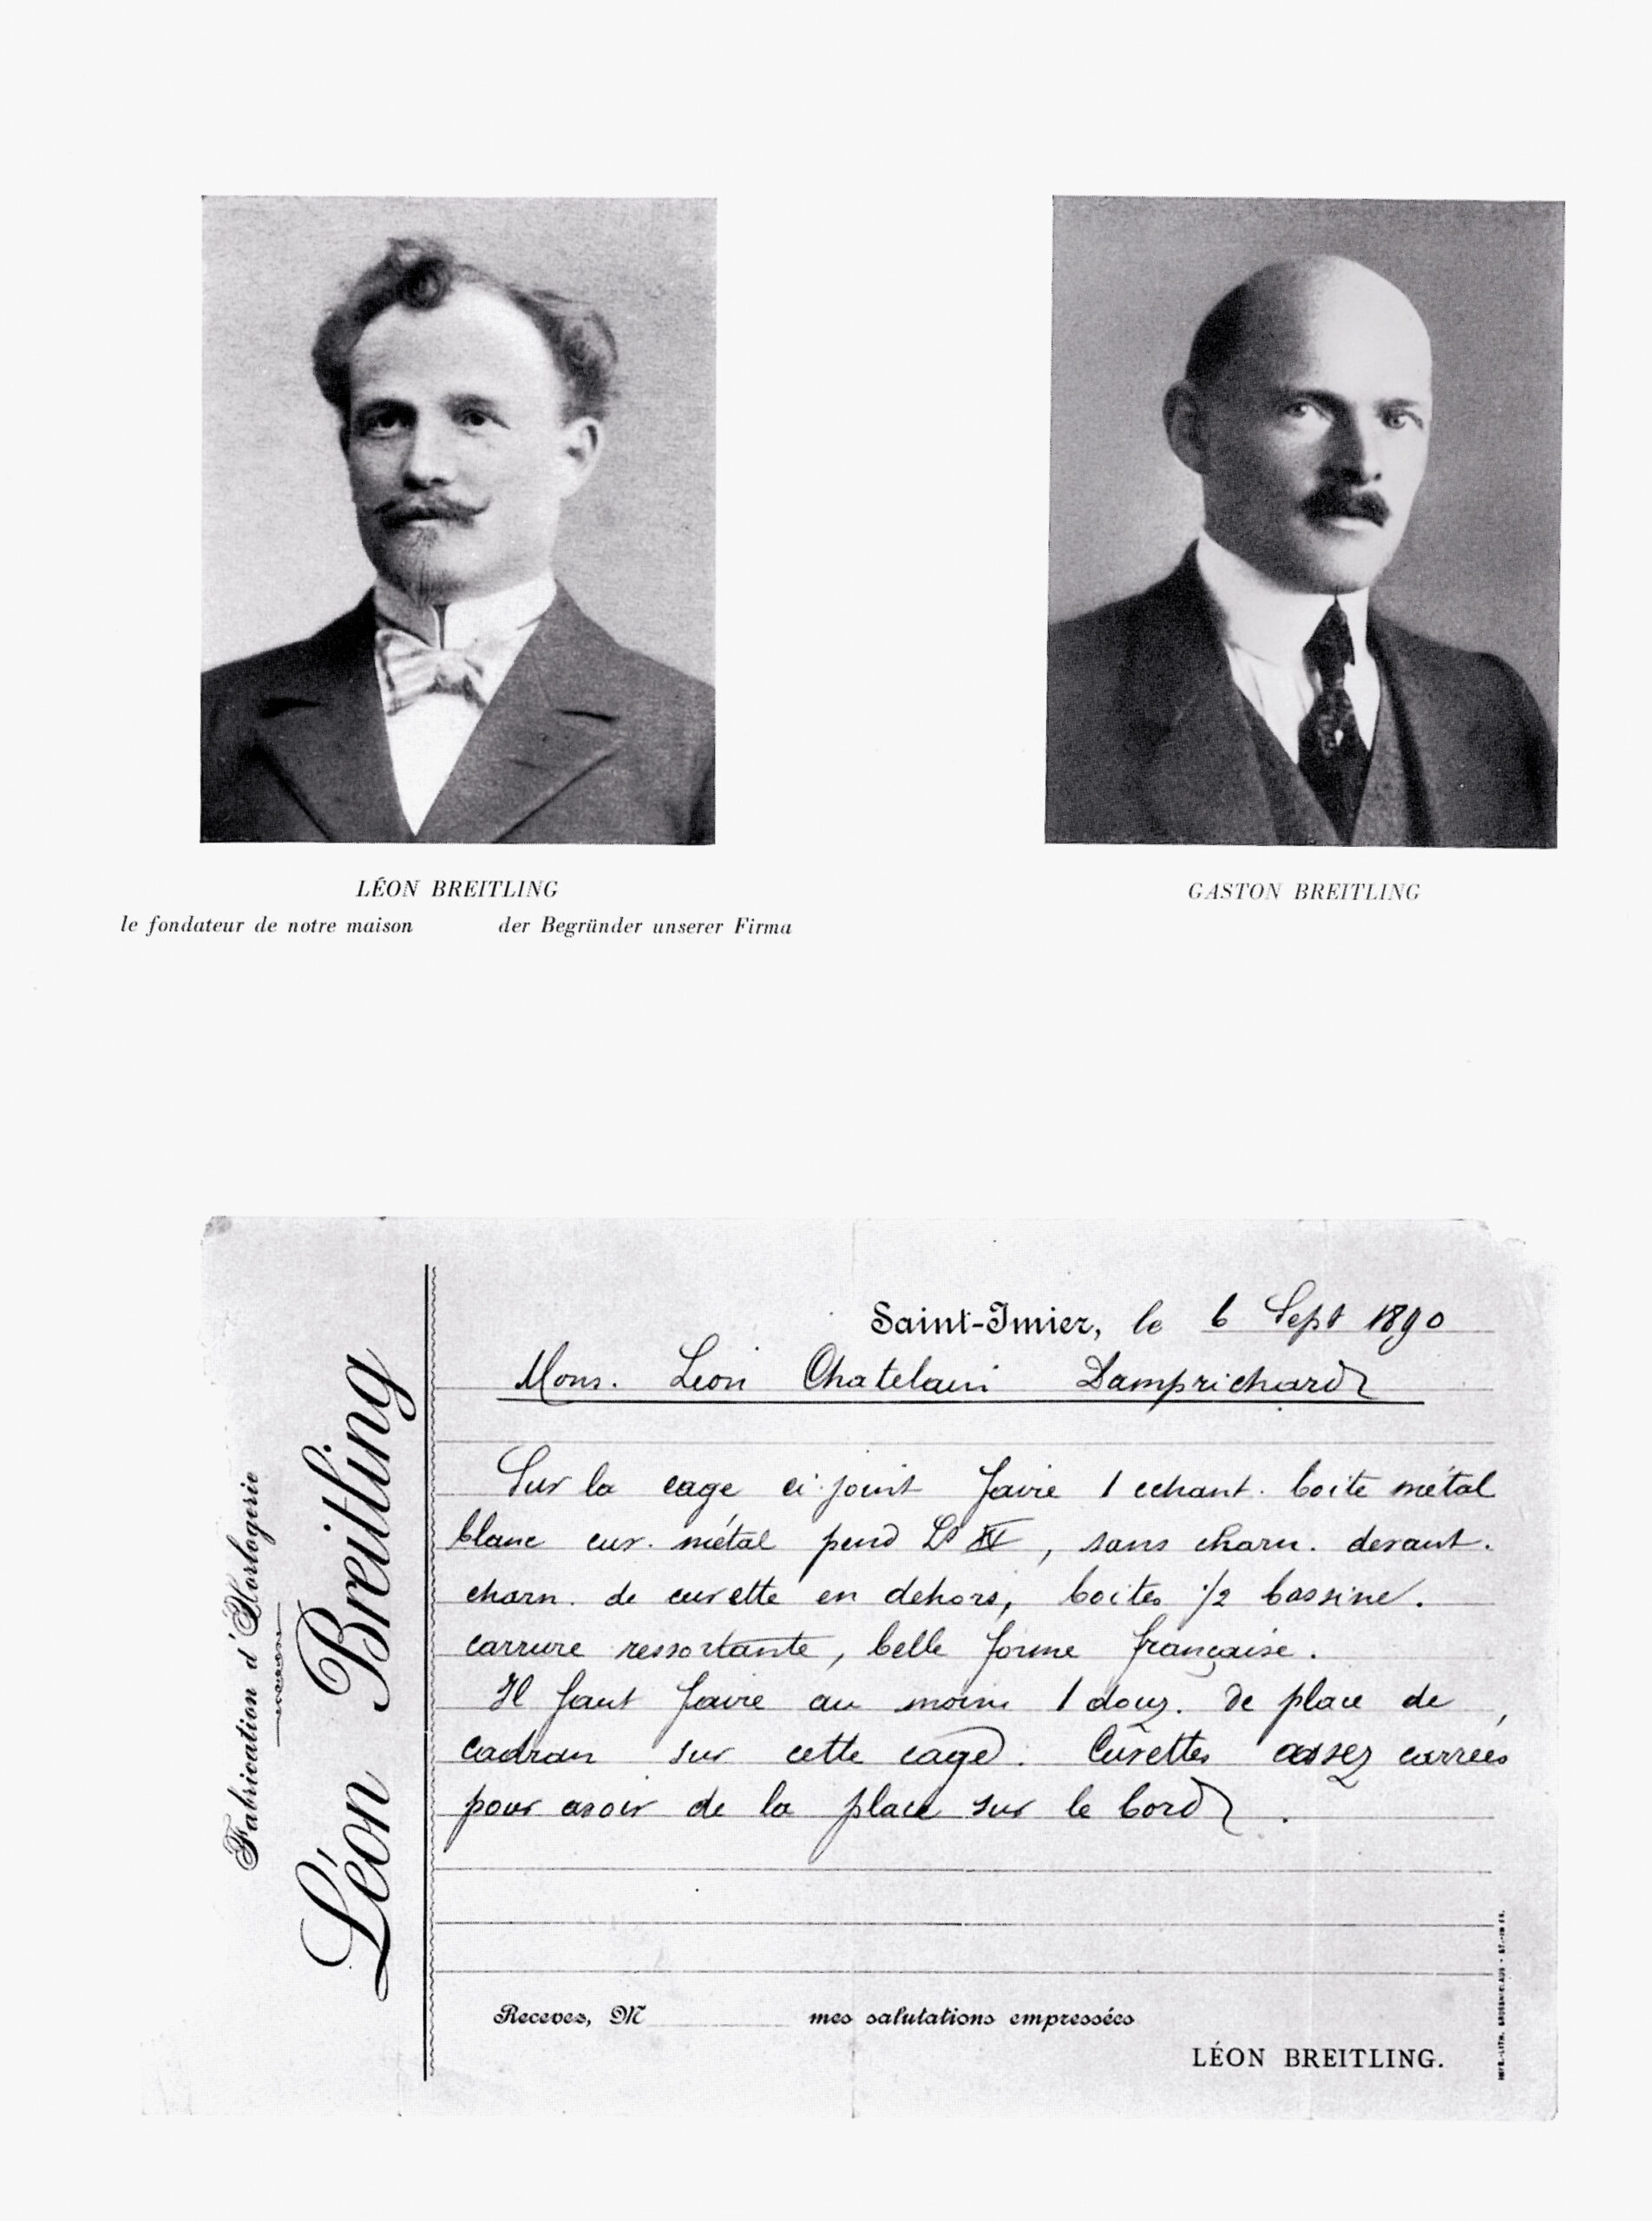 LÉON BREITLING
le fondateur de notre maison der Begründer unserer Firma
GASTON BREITLING
Fabrication d'Horlogerie
Léon Breitling
Saint-Imier, le 6 Sept 1890
Mons. Léon Chatelain Damprichard
Sur la cage ci-joint faire 1 echant. boite métal
blanc cuv. métal pend Ls XV, sans charn. devant.
charn. de cuvette en dehors, boites 1/2 bassine.
carrure ressortante, belle forme française.
Il faut faire au moins 1 douz. de place de
cadran sur cette cage. Cuvettes assez carrées
pour avoir de la place sur le bord.
Recevez, M mes salutations empressées
LÉON BREITLING.